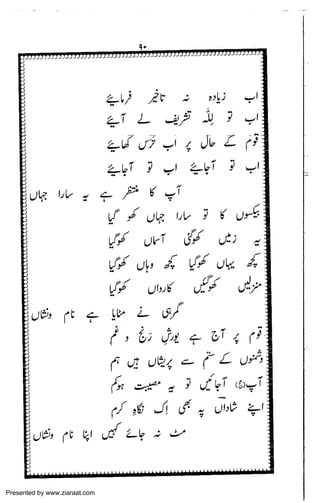 ۹۰
اب زیادہ نہ تاخیر فرمائیے
اب تو للہ تشریف لے آیئے
قوم کے حال پر اب ترس کھائیے
اب تو آجایئے اب تو آجایئے
آپ کا منتظر ہے یہ سارا جہاں
بیکسوں کا تو سارا جہاں کھو گیا
یہ زمیں کھوگئی آسماں کھوگیا
کچھ یہاں کھوگیا کچھ وہاں کھوگیا
منزلیں کھوگئیں کارواں کھوگیا
گمرہی نے مٹایا ہے نام ونشاں
قوم پر آج ہے یورشِ رنج و غم
دشمنوں کے ستم سے پریشاں ہیں ہم
آپ(عج) آجائیں تو یہ مصیبت ہوکم
اپنے شاداں پہ بھی اِک نگاہِ کرم
مٹ نہ جائے کہیں اپنا نام ونشاں
Presented by www.ziaraat.com